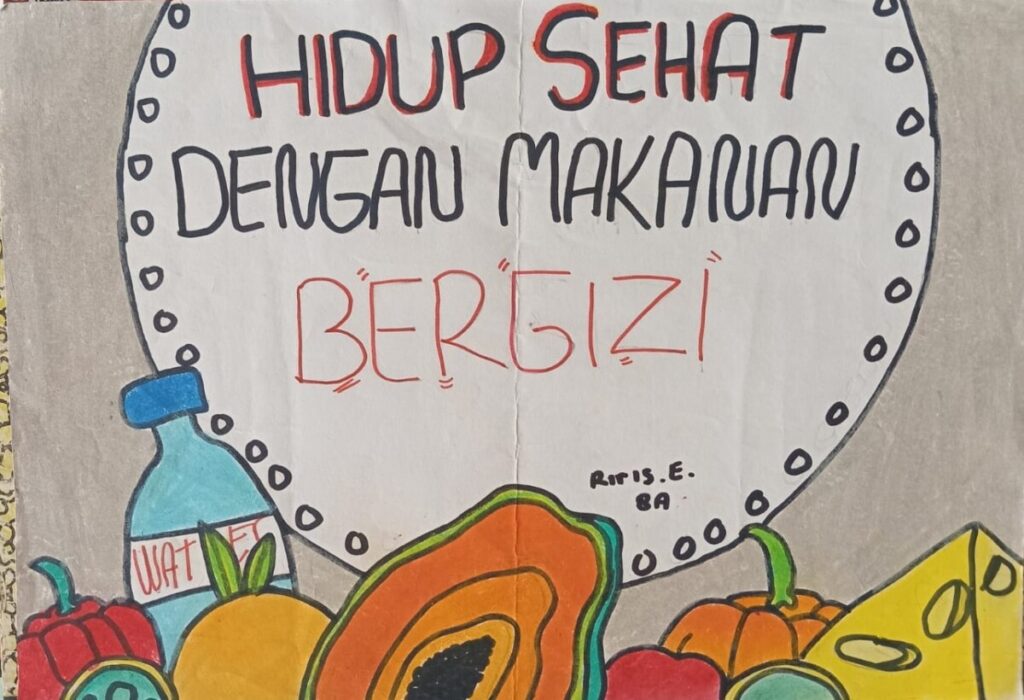 HIDUP SEHAT
DENGAN MAKANAN
BERGIZI
RIRIS.E.
8A